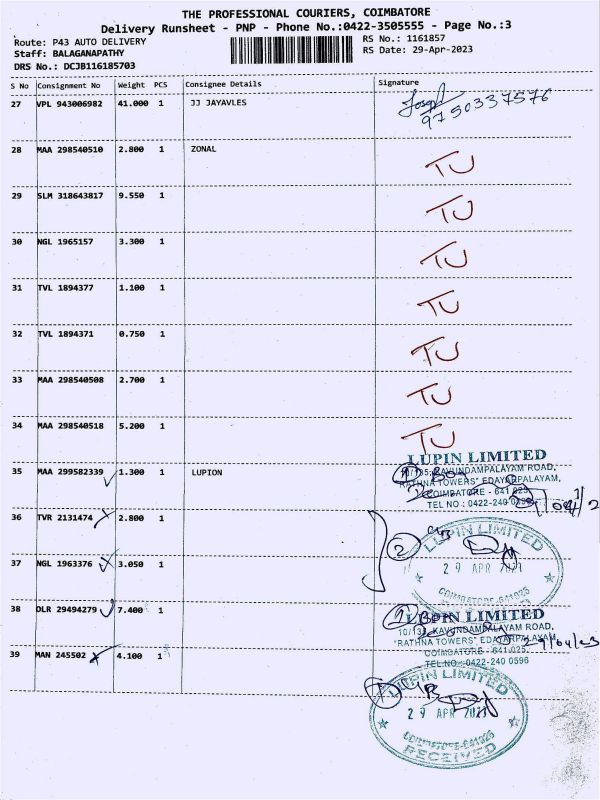 THE PROFESSIONAL COURIERS, COIMBATORE
Delivery Runsheet - PNP - Phone No.:0422-3505555 - Page No.:3
Route: P43 AUTO DELIVERY
RS No.: 1161857
Staff: BALAGANAPATHY
RS Date: 29-Apr-2023
DRS No.: DCJB116185703
S No Consignment No Weight PCS Consignee Details Signature
27 VPL 943006982 41.000 1 JJ JAYAVLES Joseph
9750337576
28 MAA 298540510 2.800 1 ZONAL TU
29 SLM 318643817 9.550 1 TU
30 NGL 1965157 3.300 1 TU
31 TVL 1894377 1.100 1 TU
32 TVL 1894371 0.750 1 TU
33 MAA 298540508 2.700 1 TU
34 MAA 298540518 5.200 1 TU
LUPIN LIMITED
10/135, KAVUNDAMPALAYAM ROAD,
35 MAA 299582339 1.300 1 LUPION
"RATHNA TOWERS" EDAYARPALAYAM,
COIMBATORE - 641 025.
TEL NO.: 0422-240 0596
36 TVR 2131474 2.800 1
LUPIN LIMITED
2
37 NGL 1963376 3.050 1
29 APR 2023
COIMBATORE-641025
38 DLR 29494279 7.400 1
LUPIN LIMITED
10/135, KAVUNDAMPALAYAM ROAD,
"RATHNA TOWERS" EDAYARPALAYAM,
29/04/23
COIMBATORE - 641 025.
39 MAN 245502 4.100 1
TEL NO.: 0422-240 0596
LUPIN LIMITED
1
29 APR 2023
COIMBATORE-641025
RECEIVED